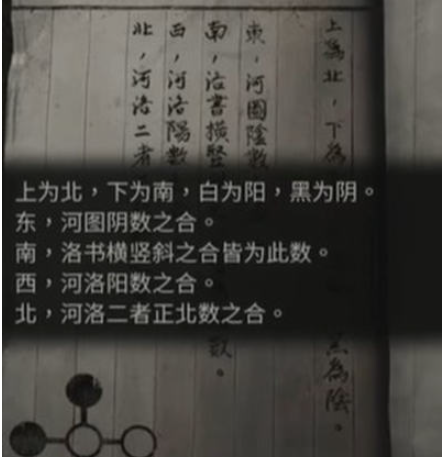 上為北，下為
東，河圖陰數
南，洛書橫竪
西，河洛陽數
北，河洛二者
上为北，下为南，白为阳，黑为阴。
东，河图阴数之合。
南，洛书横竖斜之合皆为此数。
西，河洛阳数之合。
北，河洛二者正北数之合。
為陰。
數。